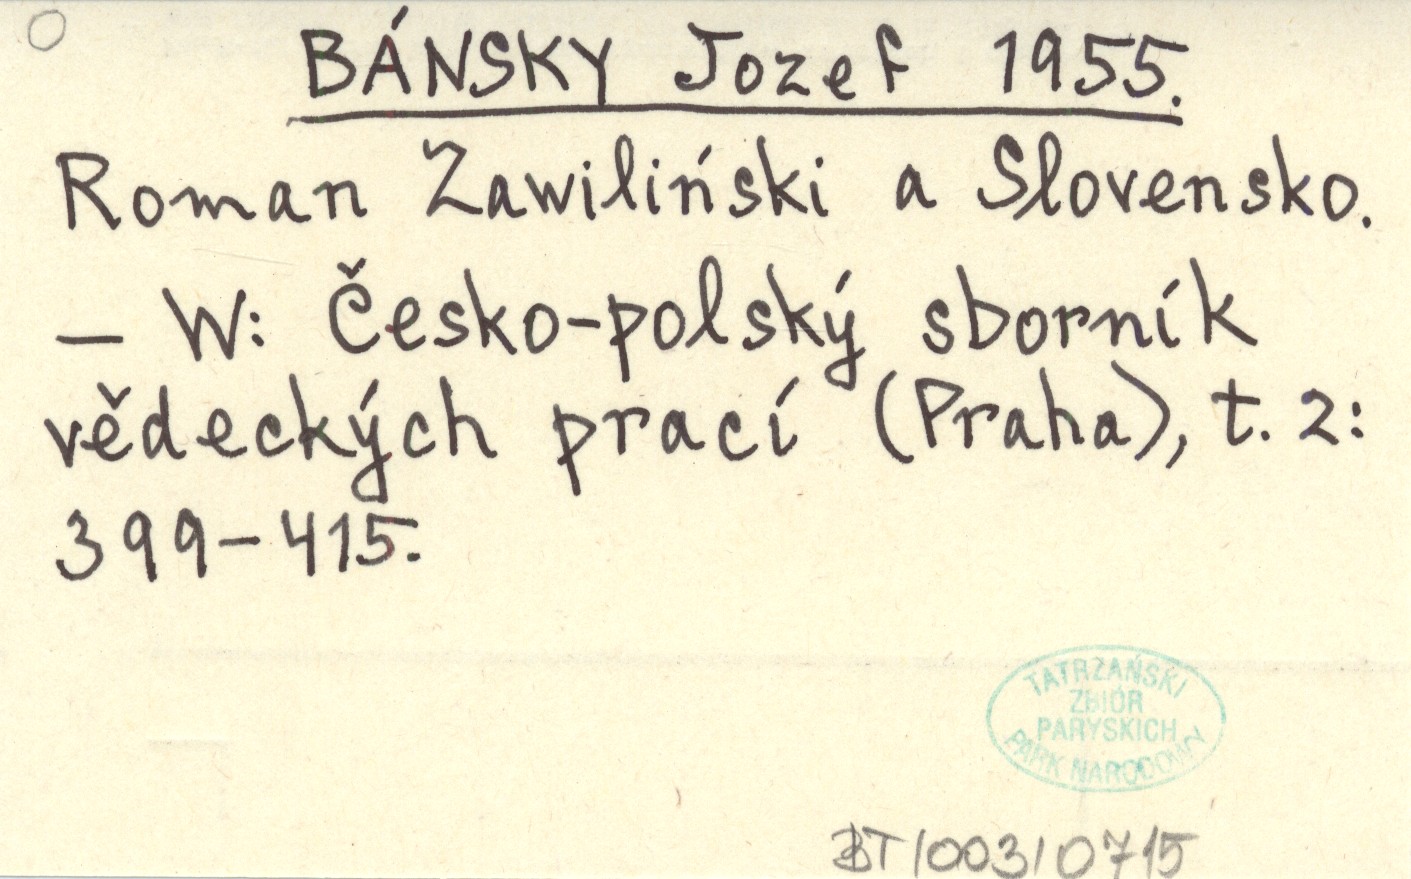 BÁNSKY Jozef 1955.
Roman Zawiliński a Slovensko.
– W: Česko-polský sborník
vědeckých prací (Praha), t. 2:
399–415.
TATRZAŃSKI
ZBIÓR
PARYSKICH
PARK NARODOWY
BT/003/0715